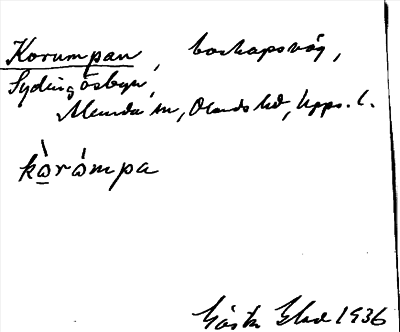 Korumpan, boskapsväg,
Sydingåsbyn,
Alunda sn, Olands hd, Upps. l.
kòrómpa
Gösta Elad 1936